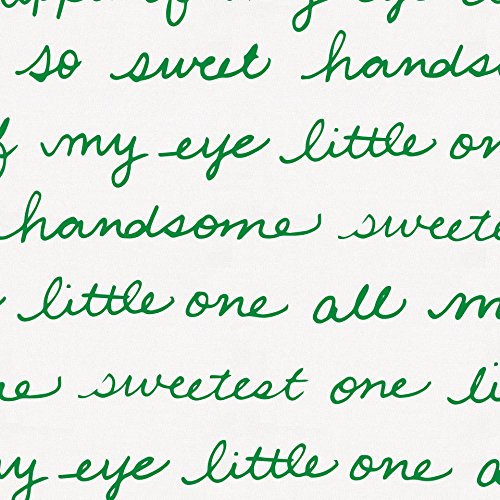 of my eye
so sweet handso
of my eye little on
handsome sweetes
little one all m
sweetest one li
my eye little one a